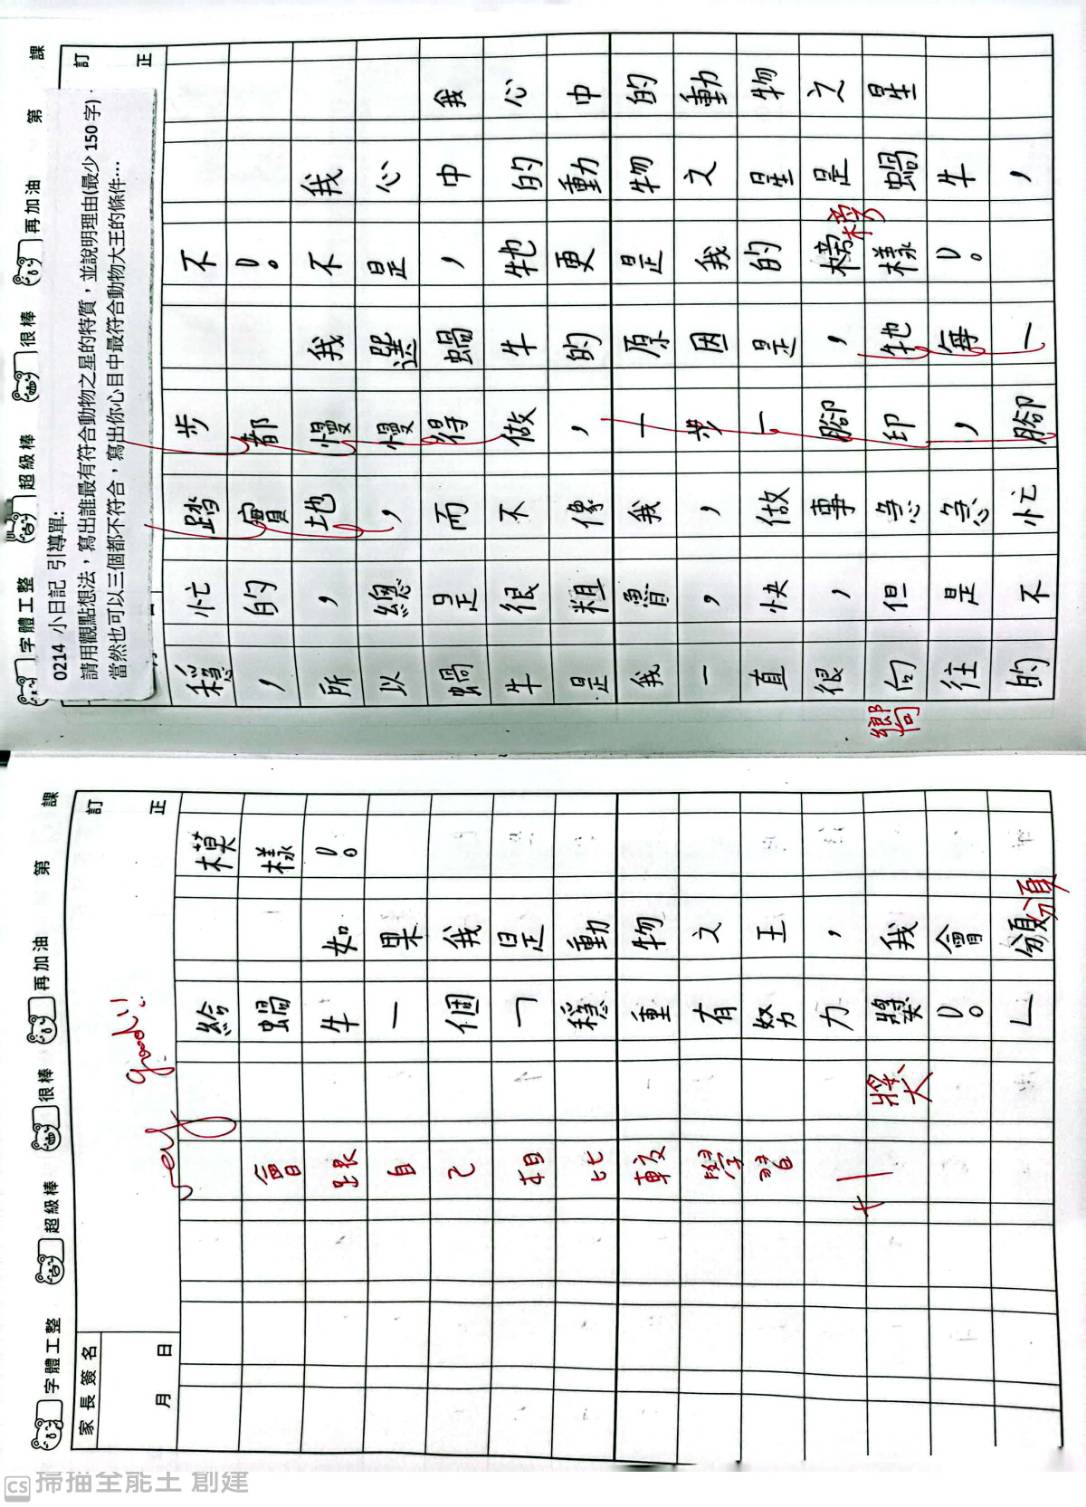 課 第 再加油 很棒 超級棒 字體工整
訂正
0214 小日記 引導單:
請用觀點想法，寫出誰最有符合動物之星的特質，並說明理由(最少 150 字)。
當然也可以三個都不符合，寫出你心目中最符合動物大王的條件…
我心中的動物之星
我心中的動物之星是蝸牛，
不。不是，牠更是我的榜樣。
榜
我選蝸牛的原因是，牠每一
步都慢慢得做，一步一腳印，腳
踏實地，而不像我，做事急急忙
忙的，總是很粗魯，快，但是不
穩，所以蝸牛是我一直很向往的
嚮
課 第 再加油 很棒 超級棒 字體工整
訂正
家長簽名
月 日
模樣。
如果我是動物之王，我會頒
頒
給蝸牛一個「穩重有努力獎。」
獎
good!!
會跟自己相比較學習
掃描全能王 創建